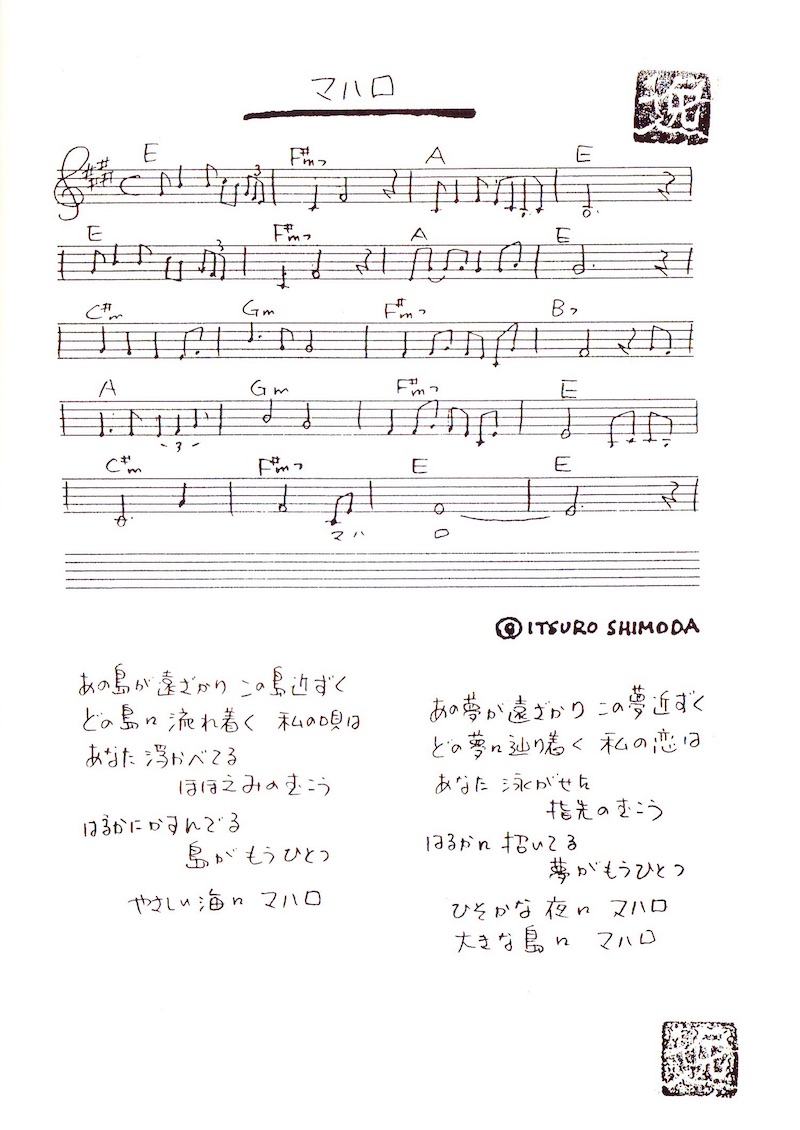 マハロ
逸
E F#m7 A E
3
E F#m7 A E
3
C#m Gm F#m7 B7
A Gm F#m7 E
3
C#m F#m7 E E
マハ ロ
© ITSURO SHIMODA
あの島が遠ざかり この島近ずく
どの島に流れ着く 私の唄は
あなた浮かべてる
ほほえみのむこう
はるかにかすんでる
島がもうひとつ
やさしい海に マハロ
あの夢が遠ざかり この夢近ずく
どの夢に辿り着く 私の恋は
あなた泳がせた
指先のむこう
はるかに招いてる
夢がもうひとつ
ひそかな夜に マハロ
大きな島に マハロ
逸